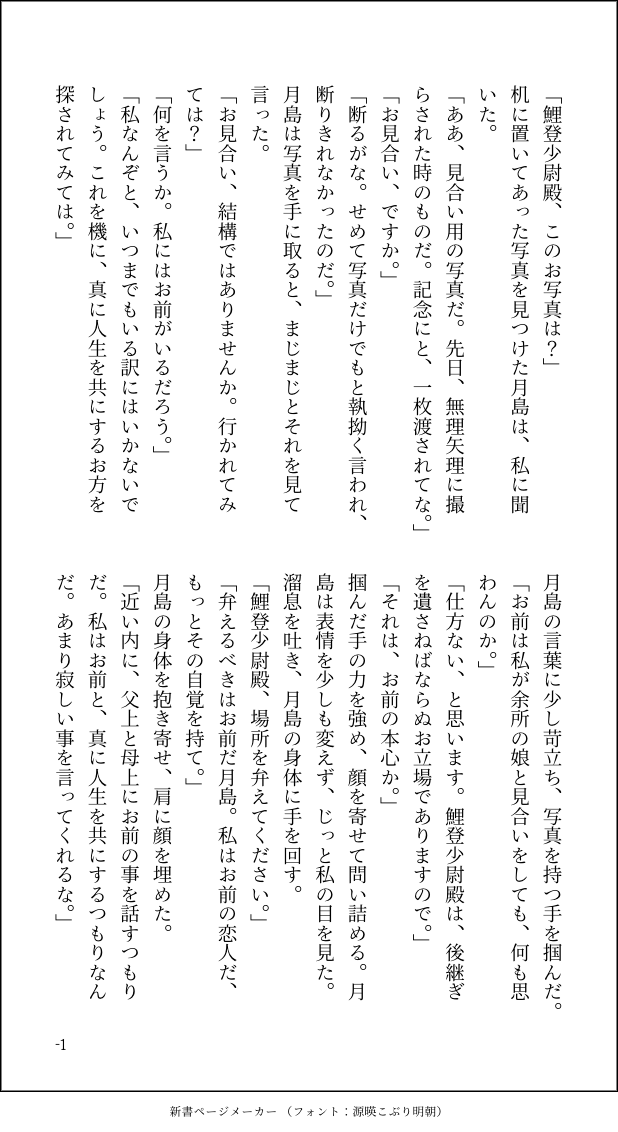 「鯉登少尉殿、このお写真は？」
机に置いてあった写真を見つけた月島は、私に聞
いた。
「ああ、見合い用の写真だ。先日、無理矢理に撮
らされた時のものだ。記念にと、一枚渡されてな。」
「お見合い、ですか。」
「断るがな。せめて写真だけでもと執拗く言われ、
断りきれなかったのだ。」
月島は写真を手に取ると、まじまじとそれを見て
言った。
「お見合い、結構ではありませんか。行かれてみ
ては？」
「何を言うか。私にはお前がいるだろう。」
「私なんぞと、いつまでもいる訳にはいかないで
しょう。これを機に、真に人生を共にするお方を
探されてみては。」
月島の言葉に少し苛立ち、写真を持つ手を掴んだ。
「お前は私が余所の娘と見合いをしても、何も思
わんのか。」
「仕方ない、と思います。鯉登少尉殿は、後継ぎ
を遺さねばならぬお立場でありますので。」
「それは、お前の本心か。」
掴んだ手の力を強め、顔を寄せて問い詰める。月
島は表情を少しも変えず、じっと私の目を見た。
溜息を吐き、月島の身体に手を回す。
「鯉登少尉殿、場所を弁えてください。」
「弁えるべきはお前だ月島。私はお前の恋人だ、
もっとその自覚を持て。」
月島の身体を抱き寄せ、肩に顔を埋めた。
「近い内に、父上と母上にお前の事を話すつもり
だ。私はお前と、真に人生を共にするつもりなん
だ。あまり寂しい事を言ってくれるな。」
-1
新書ページメーカー （フォント：源暎こぶり明朝）